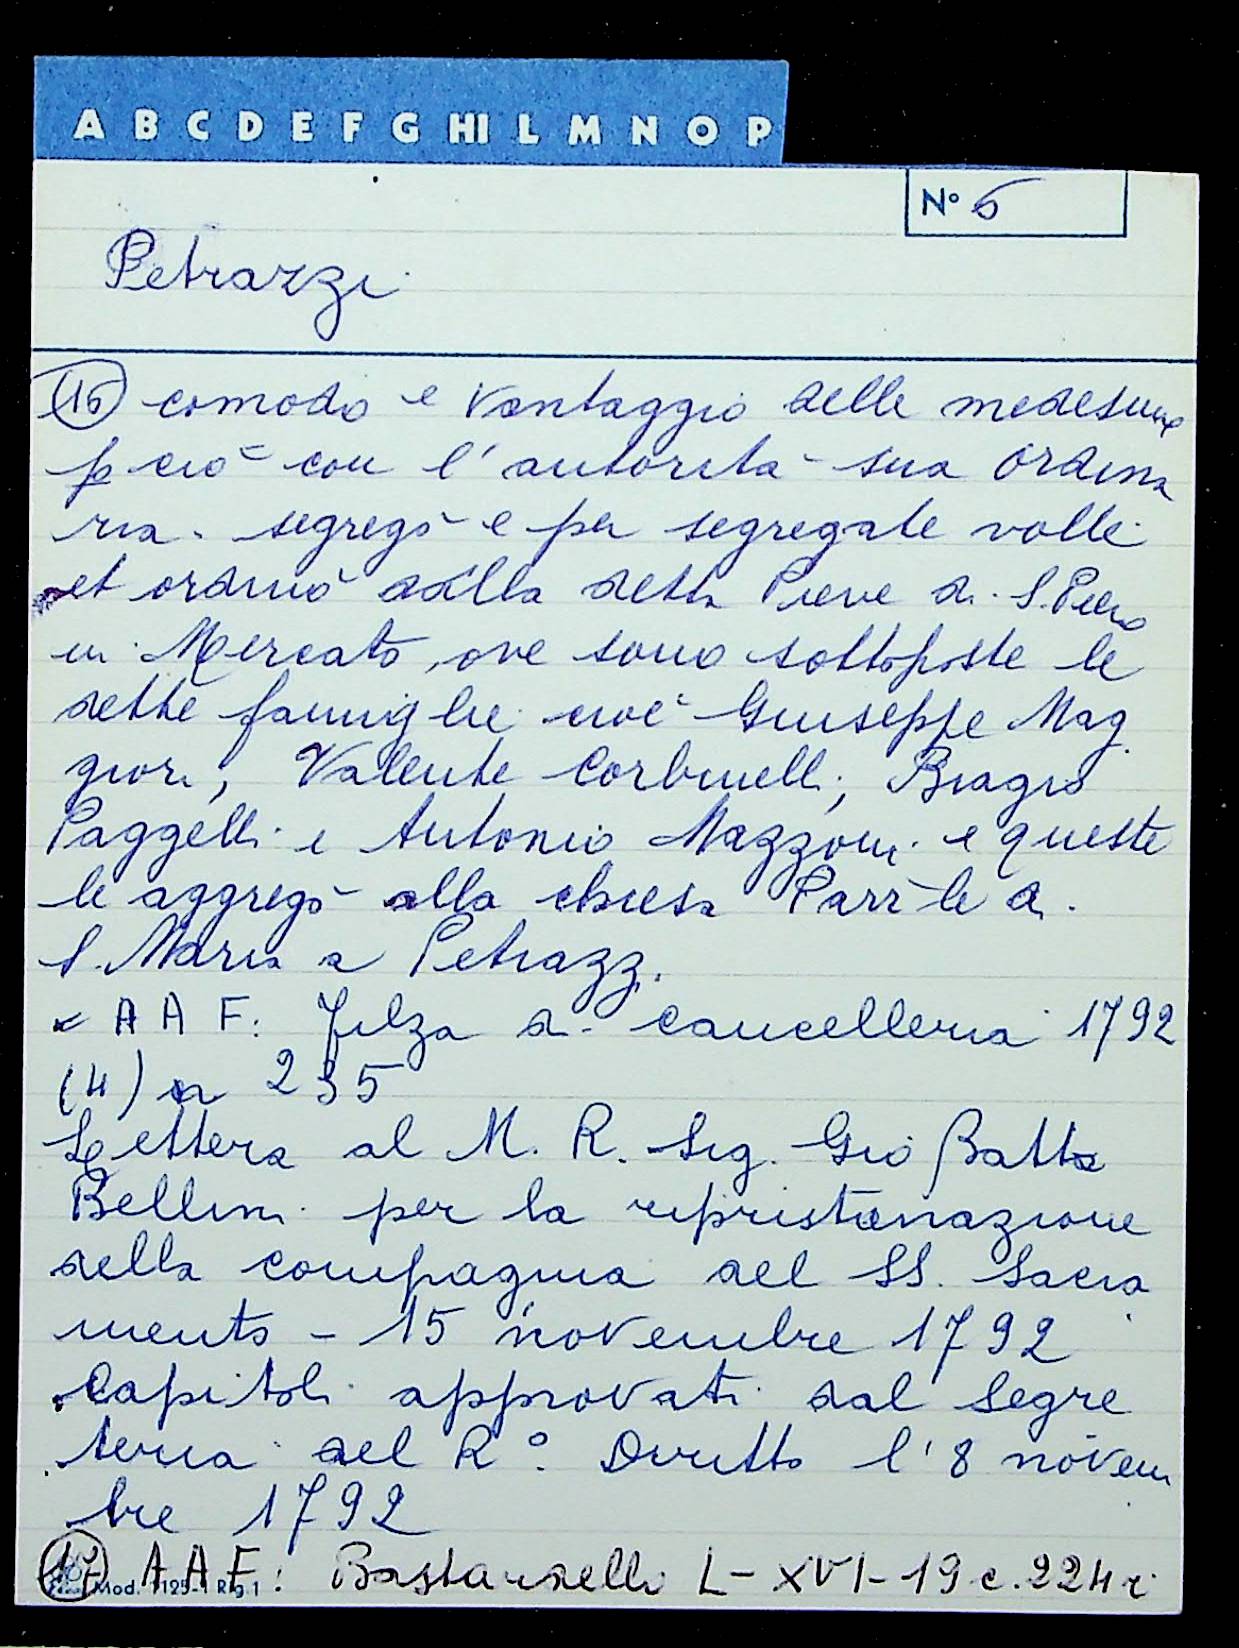 A B C D E F G HI L M N O P
N° 6
Petrazzi
(16) comodo e vantaggio delle medesime
p ciò con l'autorità sua ordina
ria segregò e per segregate volle
et ordinò dalla detta Pieve di S. Piero
in Mercato, ove sono sottoposte le
dette famiglie cioè Giuseppe Mag
giori, Valente Corbinelli, Biagio
Paggelli e Antonio Mazzoni e queste
le aggregò alla chiesa Parr-le di
S. Maria a Petrazzi.
A A F: Filza di cancelleria 1792
(4) n 235
Lettera al M. R. Sig. Gio Batta
Bellini per la ripristinazione
della compagnia del SS. Sacra
mento - 15 novembre 1792
Capitoli approvati dal Segre
teria del R° Diritto l'8 novem
bre 1792
(17) A A F: Bastardelli L-XVI-19 c. 224 r
Mod. 1125-1 Rig. 1